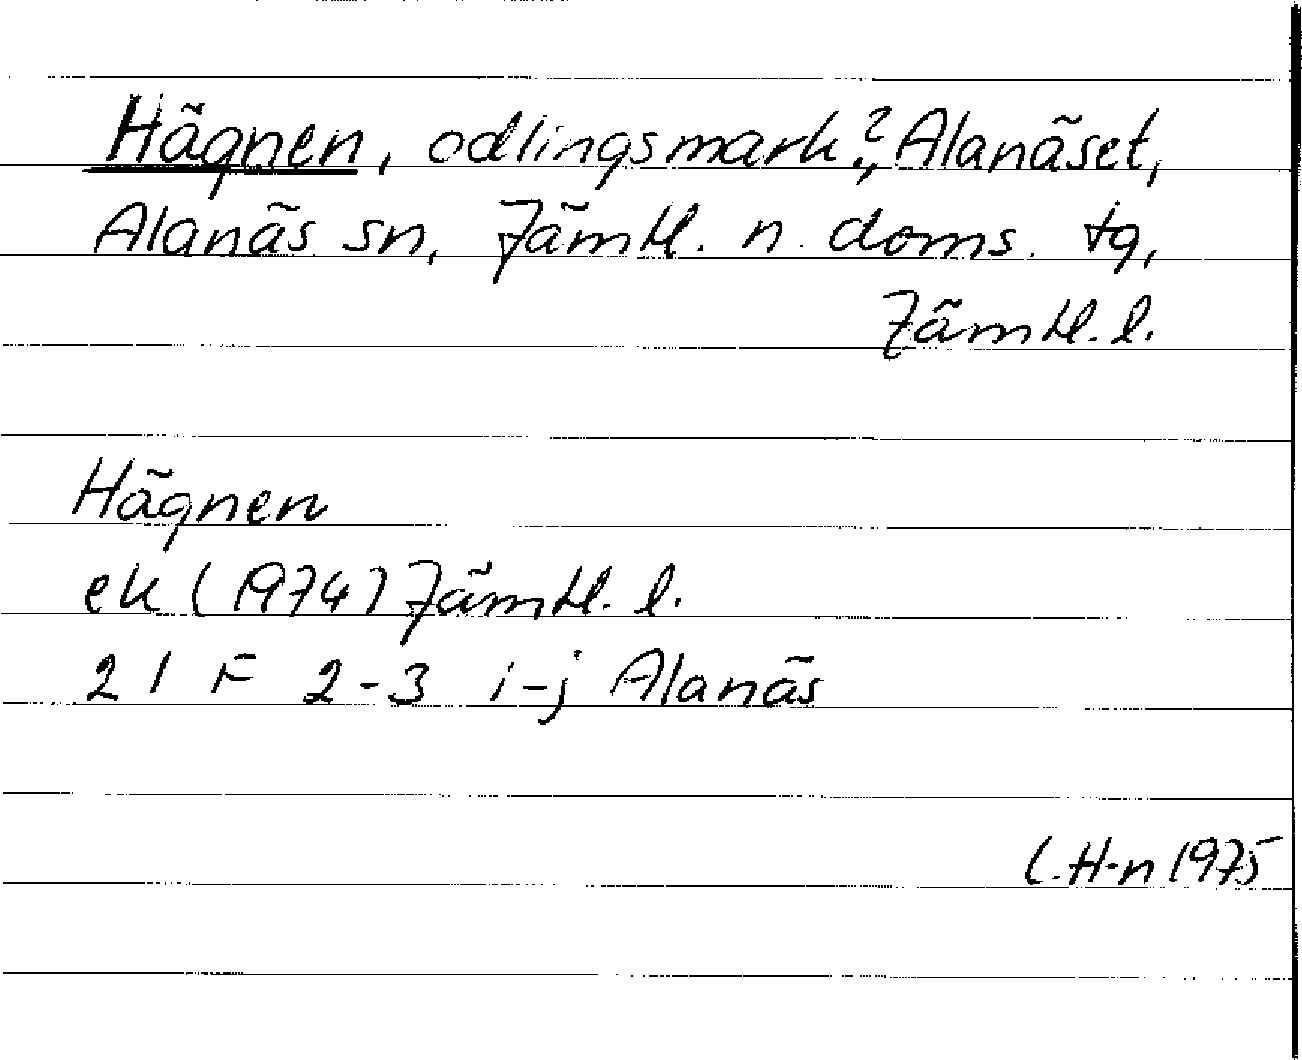 Hägnen, odlingsmark?, Alanäset,
Alanäs sn, Jämtl. n. doms. tg,
Jämtl. l.
Hägnen
ek (1974) Jämtl. l.
21 F 2-3 i-j Alanäs
C. H-n 1975